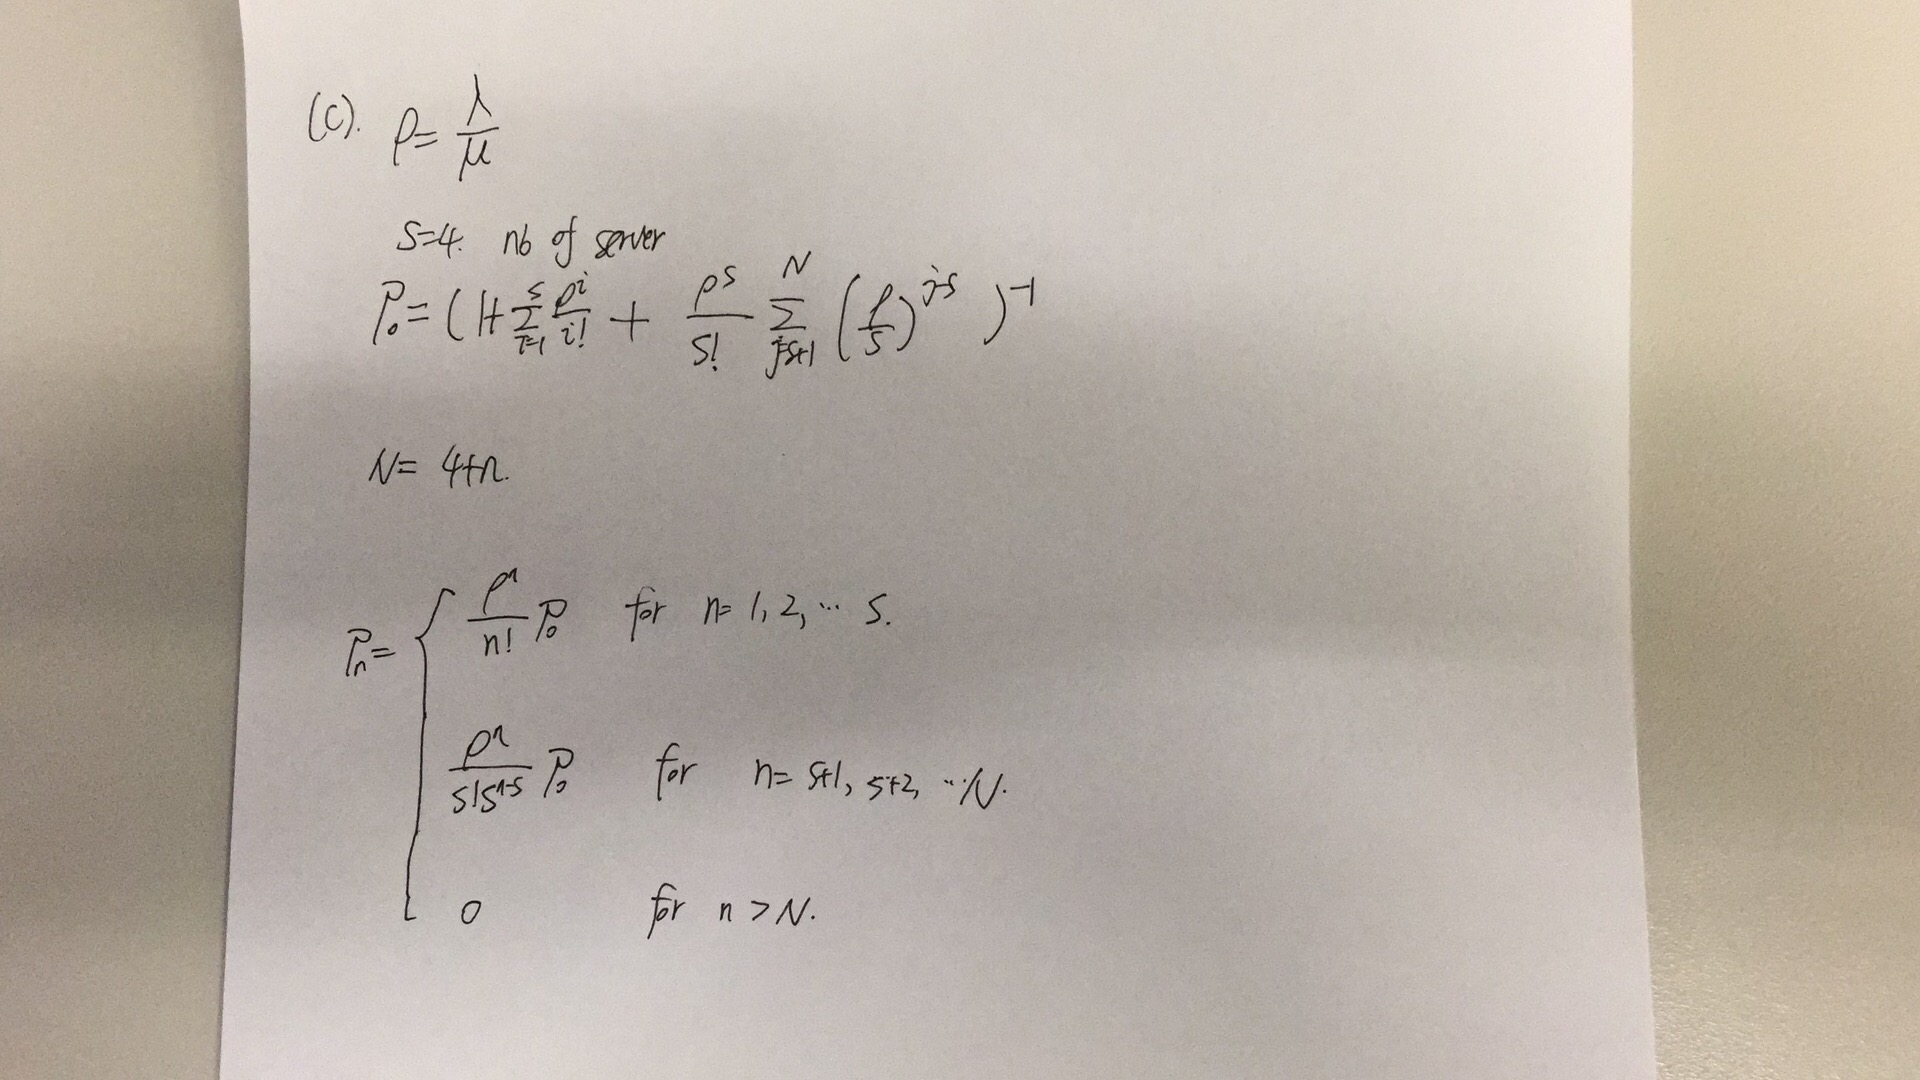 (C). ρ = λ/μ
S=4. nb of server
P₀ = (1+ Σ_{i=1}^{s} ρ^i/i! + ρ^s/s! Σ_{j=s+1}^{N} (ρ/s)^{j-s} )^{-1}
N= 4+n.
Pn = { ρ^n/n! P₀ for n= 1, 2, ... s.
ρ^n/(s!s^{n-s}) P₀ for n= s+1, s+2, ... N.
0 for n > N.